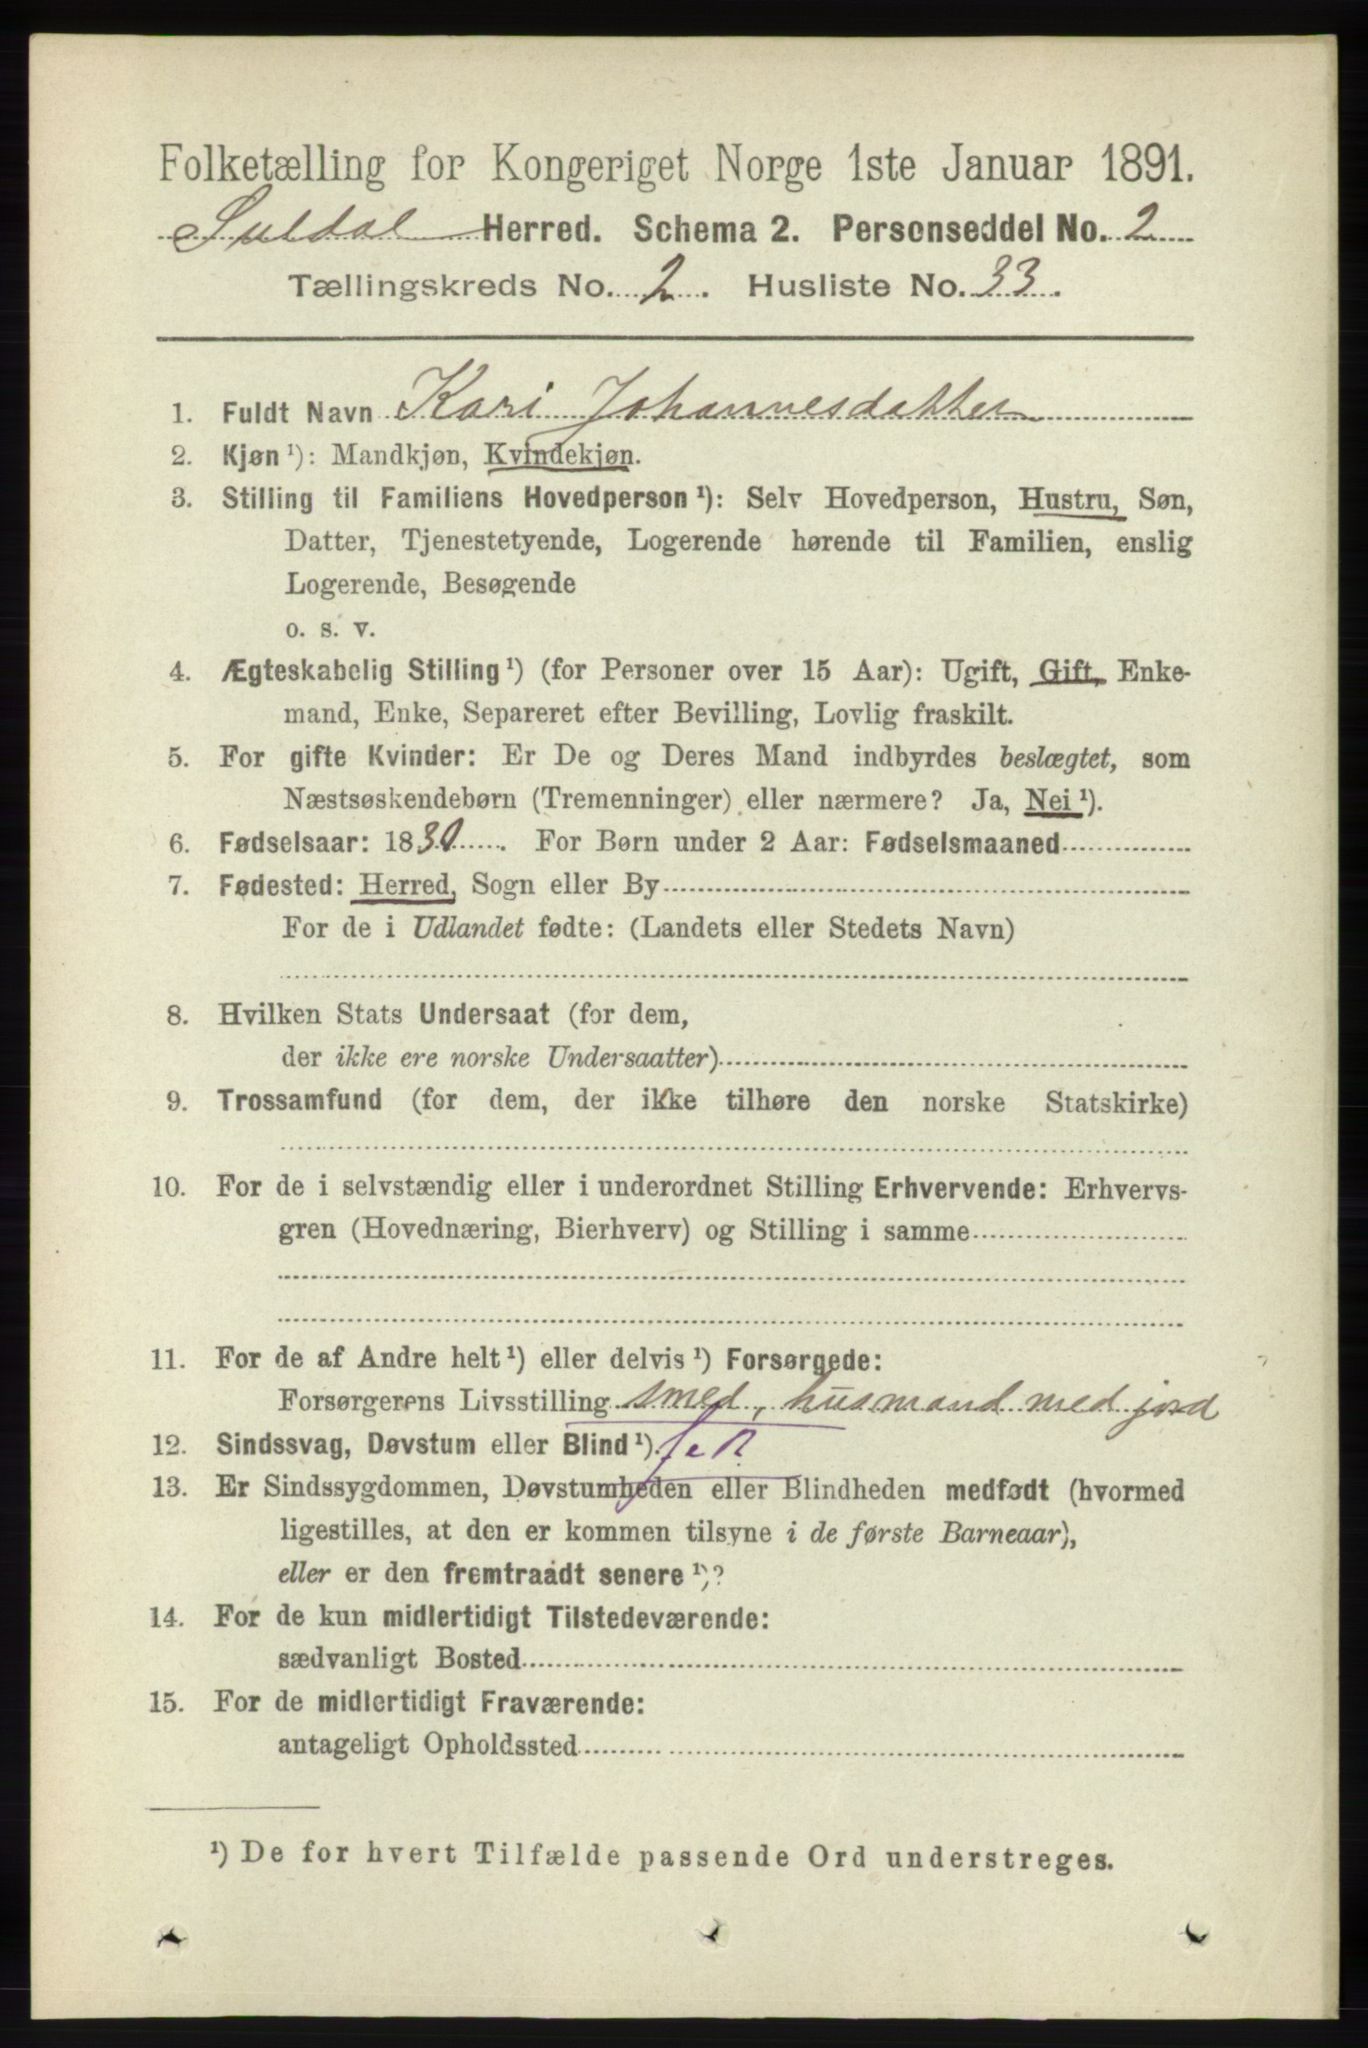 Folketælling for Kongeriget Norge 1ste Januar 1891.
Suldal Herred. Schema 2. Personseddel No. 2
Tællingskreds No. 2. Husliste No. 33.
1. Fuldt Navn Kari Johannesdatter
2. Kjøn ¹): Mandkjøn, Kvindekjøn.
3. Stilling til Familiens Hovedperson ¹): Selv Hovedperson, Hustru, Søn,
Datter, Tjenestetyende, Logerende hørende til Familien, enslig
Logerende, Besøgende
o. s. v.
4. Ægteskabelig Stilling ¹) (for Personer over 15 Aar): Ugift, Gift, Enke-
mand, Enke, Separeret efter Bevilling, Lovlig fraskilt.
5. For gifte Kvinder: Er De og Deres Mand indbyrdes beslægtet, som
Næstsøskendebørn (Tremenninger) eller nærmere? Ja, Nei ¹).
6. Fødselsaar: 1830. For Børn under 2 Aar: Fødselsmaaned
7. Fødested: Herred, Sogn eller By
For de i Udlandet fødte: (Landets eller Stedets Navn)
8. Hvilken Stats Undersaat (for dem,
der ikke ere norske Undersaatter)
9. Trossamfund (for dem, der ikke tilhøre den norske Statskirke)
10. For de i selvstændig eller i underordnet Stilling Erhvervende: Erhvervs-
gren (Hovednæring, Bierhverv) og Stilling i samme
11. For de af Andre helt ¹) eller delvis ¹) Forsørgede:
Forsørgerens Livsstilling smed, husmand med jord
12. Sindssvag, Døvstum eller Blind ¹).
13. Er Sindssygdommen, Døvstumheden eller Blindheden medfødt (hvormed
ligestilles, at den er kommen tilsyne i de første Barneaar),
eller er den fremtraadt senere ¹)?
14. For de kun midlertidigt Tilstedeværende:
sædvanligt Bosted
15. For de midlertidigt Fraværende:
antageligt Opholdssted
¹) De for hvert Tilfælde passende Ord understreges.